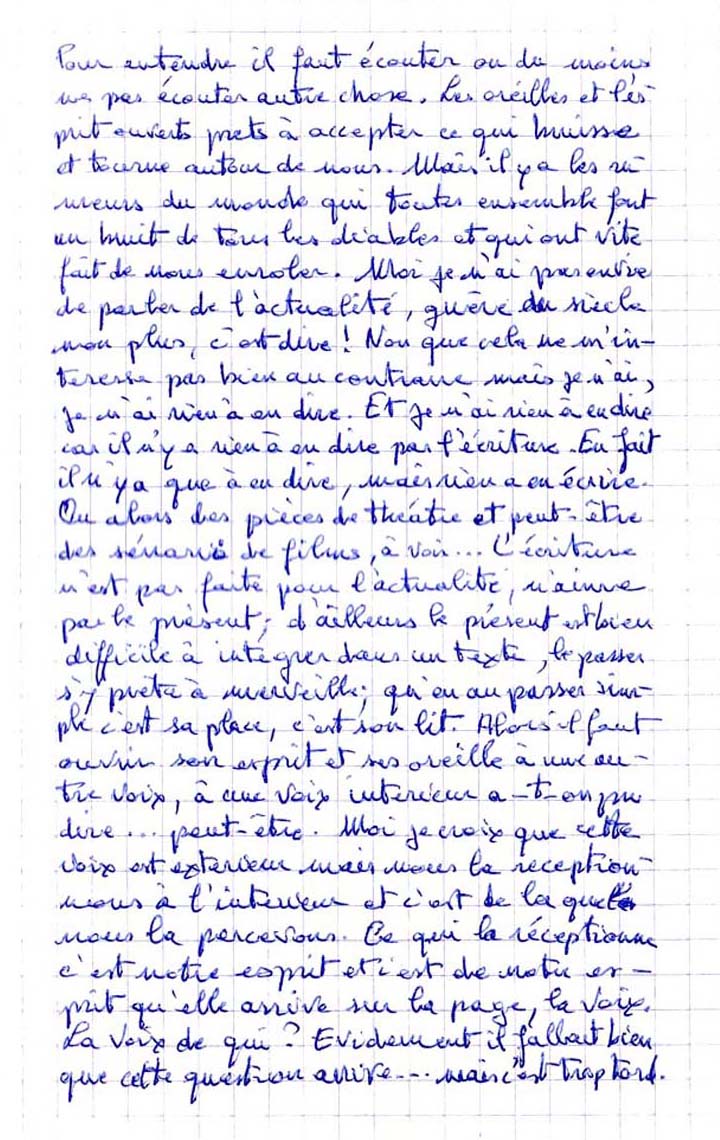 Pour entendre il faut écouter ou du moins
ne pas écouter autre chose. Les oreilles et l'es
prit ouverts prets à accepter ce qui bruisse
et tourne autour de nous. Mais il y a les ru
meurs du monde qui toutes ensemble font
un bruit de tous les diables et qui ont vite
fait de nous enroler. Moi je n'ai pas envie
de parler de l'actualité, guère du siècle
non plus, c'est dire ! Non que cela ne m'in-
teresse pas bien au contraire mais je n'ai,
je n'ai rien à en dire. Et je n'ai rien à en dire
car il n'y a rien à en dire par l'écriture. En fait
il n'y a que à en dire, mais rien a en écrire.
Ou alors des pièces de théatre et peut-être
des sénarii de films, à voir... L'écriture
n'est pas faite pour l'actualité, n'aime
pas le présent; d'ailleurs le présent est bien
difficile à intégrer dans un texte, le passer
s'y prète à merveille; qu'en au passer sim-
ple c'est sa place, c'est son lit. Alors il faut
ouvrir son esprit et ses oreille à une au-
tre voix, à une voix interieur a-t-on pu
dire... peut-être. Moi je croix que cette
voix est exterieur mais nous la reception-
nons à l'interieur et c'est de la que
nous la percevons. Ce qui la réceptionne
c'est notre esprit et c'est de notre es-
prit qu'elle arrive sur la page, la voix.
La voix de qui ? Evidement il fallait bien
que cette question arrive... mais c'est trop tard.